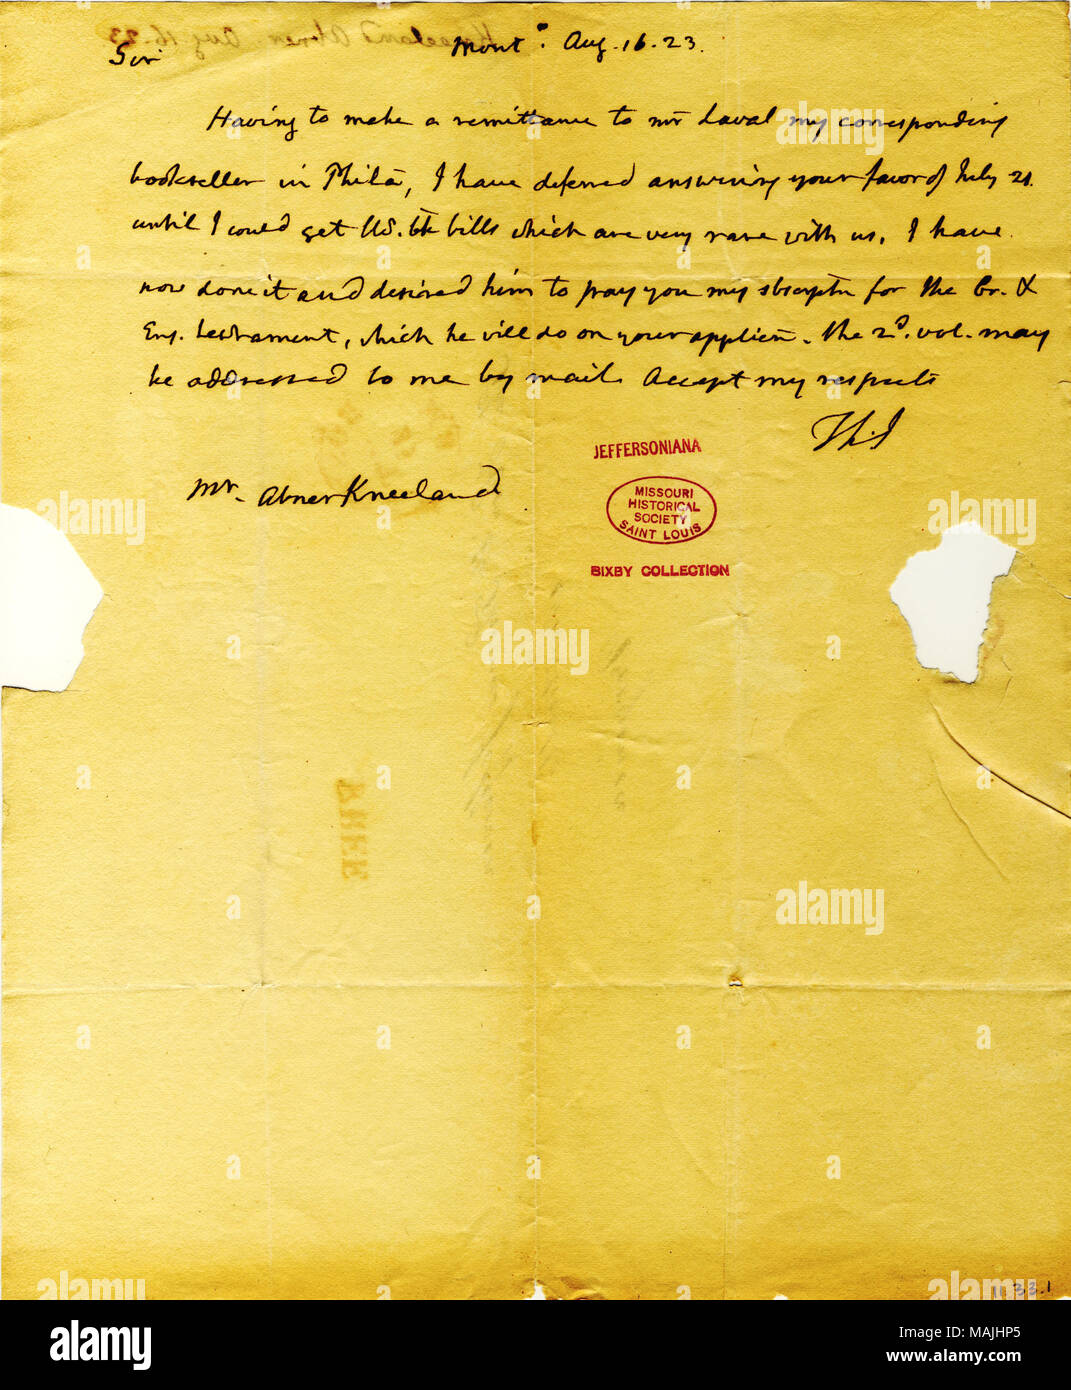 Kneeland Abner. Aug 16. 23
Sir Monto. Aug. 16. 23.
Having to make a remittance to mr Laval my corresponding
bookseller in Phila, I have deferred answering your favor of July 21.
until I could get US. bk bills which are very rare with us. I have
now done it and desired him to pay you my subscriptn for the Gr. &
Eng. testament, which he will do on your applicn. the 2d. vol. may
be addressed to me by mail. Accept my respects
Th: J
mr. Abner Kneeland
JEFFERSONIANA
MISSOURI
HISTORICAL
SOCIETY
SAINT LOUIS
BIXBY COLLECTION
FREE
1133.1
alamy
alamy
alamy
alamy
alamy
alamy
alamy
alamy
alamy
alamy
alamy
alamy
Image ID: MAJHP5
www.alamy.com